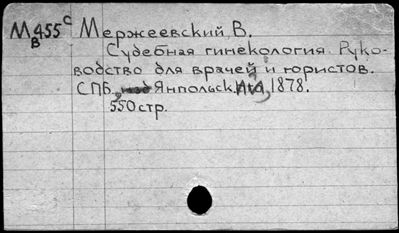 М455С Мержеевский В.
В Судебная гинекология. Руко-
водство для врачей и юристов.
СПБ, Янпольск. 1878.
550 стр.